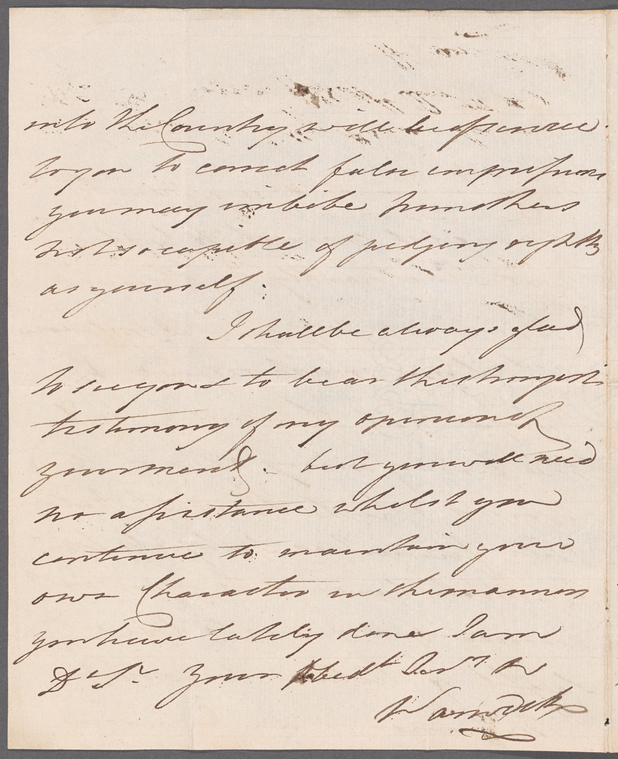 into the Country will be of service
to you to correct false impressions
you may imbibe from others
not so capable of judging rightly
as yourself.
I shall be always glad
to see you & to bear the strongest
testimony of my opinion of
your merit. but you will need
no assistance whilst you
continue to maintain your
own Character in the manner
you have lately done I am
Dr Sr. Your obedt Servt
Warwick